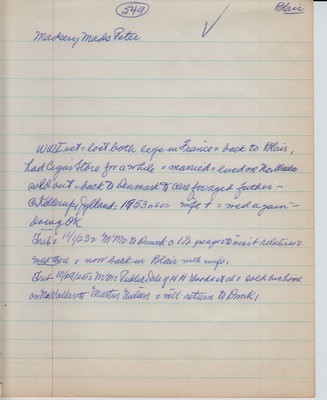 549
Blair
Madsen, Mads Peter
WWI vet = lost both legs in France = back to Blair,
had Cigar Store for a while = married = lived on No Walker
sold out = back to Denmark to care for aged father =
Jylland: 1953 = wife + = wed again =
doing OK
1/1/23 = M Ms to Dnmrk a 1½ yrs ago to visit relatives =
wed there = now back in Blair with wife,
MM Public Sale of H H Goods et al = sold his house
on No Walker to Martin = will return to Dnmk,